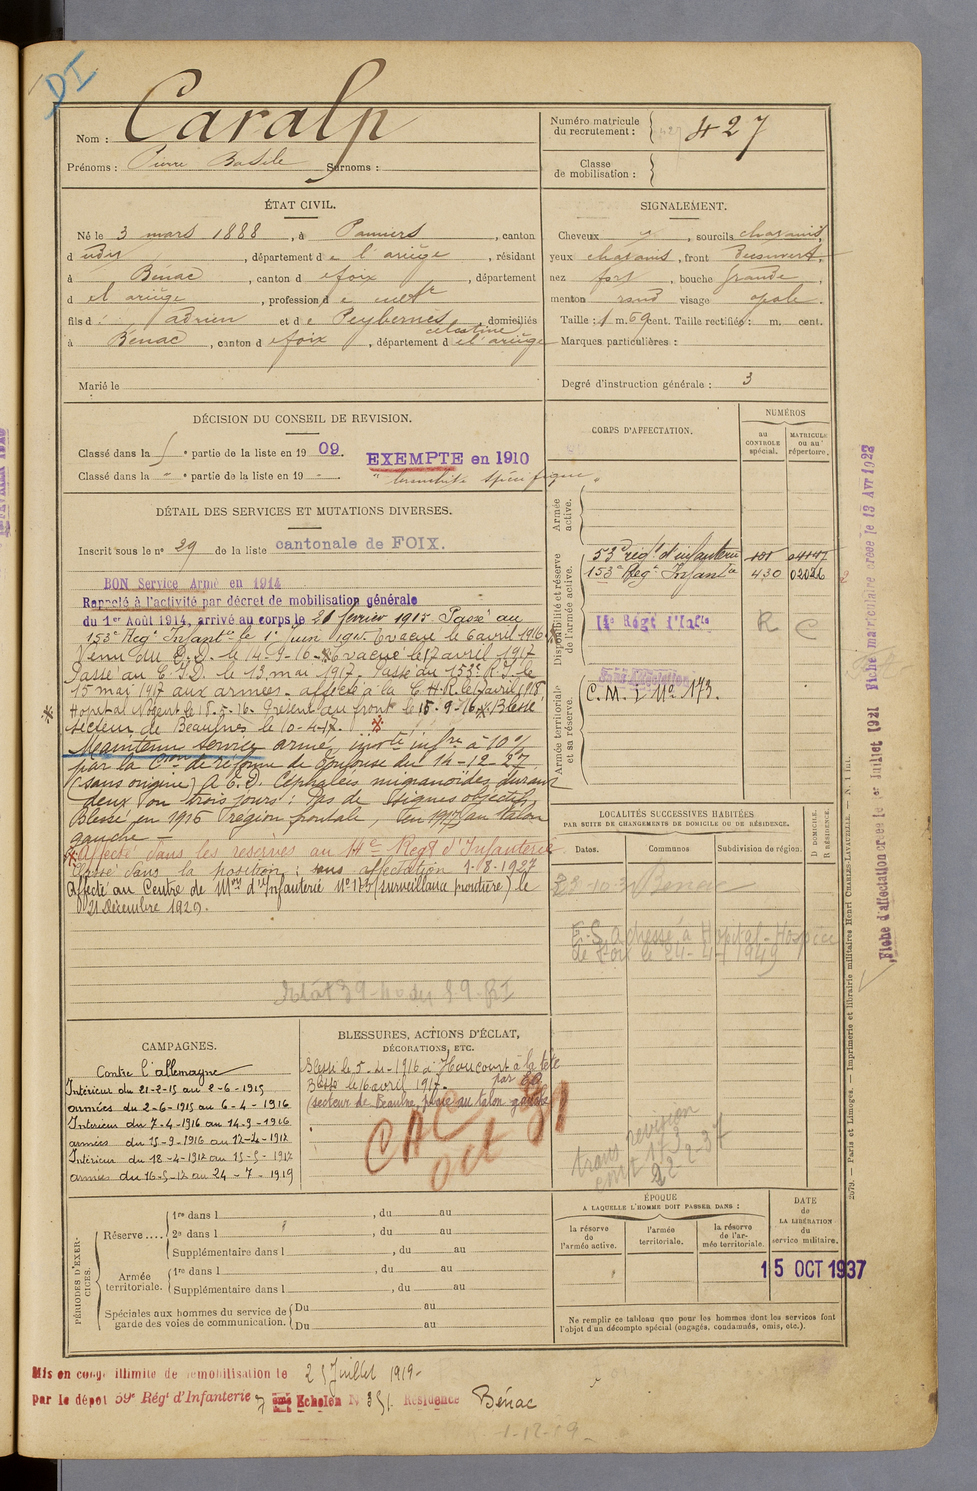 DI
Nom : Caralp
Prénoms : Pierre Basile Surnoms :
Numéro matricule du recrutement : 427
Classe de mobilisation :
ÉTAT CIVIL.
Né le 3 mars 1888, à Pamiers, canton
d udit, département de l'ariège, résidant
à Bénac, canton d e foix, département
d el ariège, profession d e cultr
fils d : adrien et de Peybernes celestine, domiciliés
à Bénac, canton d e foix, département d e l'ariège
Marié le
SIGNALEMENT.
Cheveux, sourcils chatains,
yeux chatains, front découvert,
nez fort, bouche grande,
menton rond visage ovale.
Taille : 1 m. 69 cent. Taille rectifiée : m. cent.
Marques particulières :
Degré d'instruction générale : 3
DÉCISION DU CONSEIL DE REVISION.
Classé dans la partie de la liste en 1909.
EXEMPTÉ en 1910
Classé dans la " partie de la liste en 19
DÉTAIL DES SERVICES ET MUTATIONS DIVERSES.
Inscrit sous le no 29 de la liste cantonale de FOIX.
BON Service Armé en 1914
Rappelé à l'activité par décret de mobilisation générale
du 1er Août 1914, arrivé au corps le 21 février 1915 Passé au
153e Regt Infantie le 1er Juin 1915. Evacué le 6 avril 1916
Venu du C.I.D. le 14-9-16. Evacué le 17 avril 1917
Passé au C.I.D. le 13 mai 1917. Passé au 153e R.I. le
15 mai 1917 aux armées. affecté à la C.H.R. le 6 avril 1918
Hopital Nogent le 15-5-16. Présent au front le 15-9-16 Blessé
secteur de Beaulnes le 10-4-17.
Maintenu service armé, invté infre à 10 %
par la Cion de réforme de Toulouse du 14-12-27
(sans origine) A.E.D. Céphalées migranoïdes durant
deux ou trois jours : Pas de signes objectifs,
Blessé en 1916 région frontale, en 1917 au talon
gauche —
Affecté dans les réserves au 14e Regt d'Infanterie
Classé dans la position : sans affectation 1-8-1927
Affecté au Centre de Mon d'Infanterie No 173 (surveillance frontière) le
21 Décembre 1929.
CORPS D'AFFECTATION.
NUMÉROS
au CONTRÔLE spécial.
MATRICULE ou au répertoire.
Armée active.
Disponibilité et réserve de l'armée active.
53e régt d'infanterie
153e Regt Infantie 430 02026
14e Régt d'Infie R C
Armée territoriale et sa réserve.
Sans Affectation
C. M. I. No 173.
LOCALITÉS SUCCESSIVES HABITÉES
PAR SUITE DE CHANGEMENTS DE DOMICILE OU DE RÉSIDENCE.
Dates. Communes Subdivision de région.
D DOMICILE.
R RÉSIDENCE.
Bénac
E.S. adressé à Hopital-Hospice
de Foix le 24-4-1949
CAMPAGNES.
Contre l'allemagne
Intérieur du 21-2-15 au 2-6-1915
armées du 2-6-1915 au 6-4-1916
Intérieur du 7-4-1916 au 14-9-1916
armées du 15-9-1916 au 17-4-1917
Intérieur du 18-4-1917 au 15-5-1917
armées du 16-5-17 au 24-7-1919
BLESSURES, ACTIONS D'ÉCLAT,
DÉCORATIONS, ETC.
Blessé le 5-4-1916 à Haucourt à la tête
Blessé le 16 avril 1917. par
(secteur de Beaulne, plaie au talon gauche)
CAC
oct 51
trans revision
cmt 173
22-2-37
PÉRIODES D'EXERCICES.
Réserve....
1re dans l , du au
2e dans l , du au
Supplémentaire dans l , du au
Armée territoriale.
1re dans l , du au
Supplémentaire dans l , du au
Spéciales aux hommes du service de garde des voies de communication.
Du au
Du au
ÉPOQUE
A LAQUELLE L'HOMME DOIT PASSER DANS :
la réserve de l'armée active.
l'armée territoriale.
la réserve de l'armée territoriale.
DATE de LA LIBÉRATION du service militaire.
15 OCT 1937
Ne remplir ce tableau que pour les hommes dont les services font
l'objet d'un décompte spécial (engagés, condamnés, omis, etc.).
Mis en congé illimité de démobilisation le 25 Juillet 1919-
par le dépôt 59e Régt d'Infanterie 7 ème Echelon N 351. Résidence Bénac
Fiche d'affectation créée le 1er Juillet 1921 Fiche matriculaire créée le 13 Avr 1923
2079. — Paris et Limoges. — Imprimerie et librairie militaires Henri CHARLES-LAVAUZELLE. — N. 1 int.